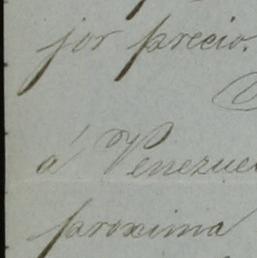 jor precio.
á Venezue
proxima